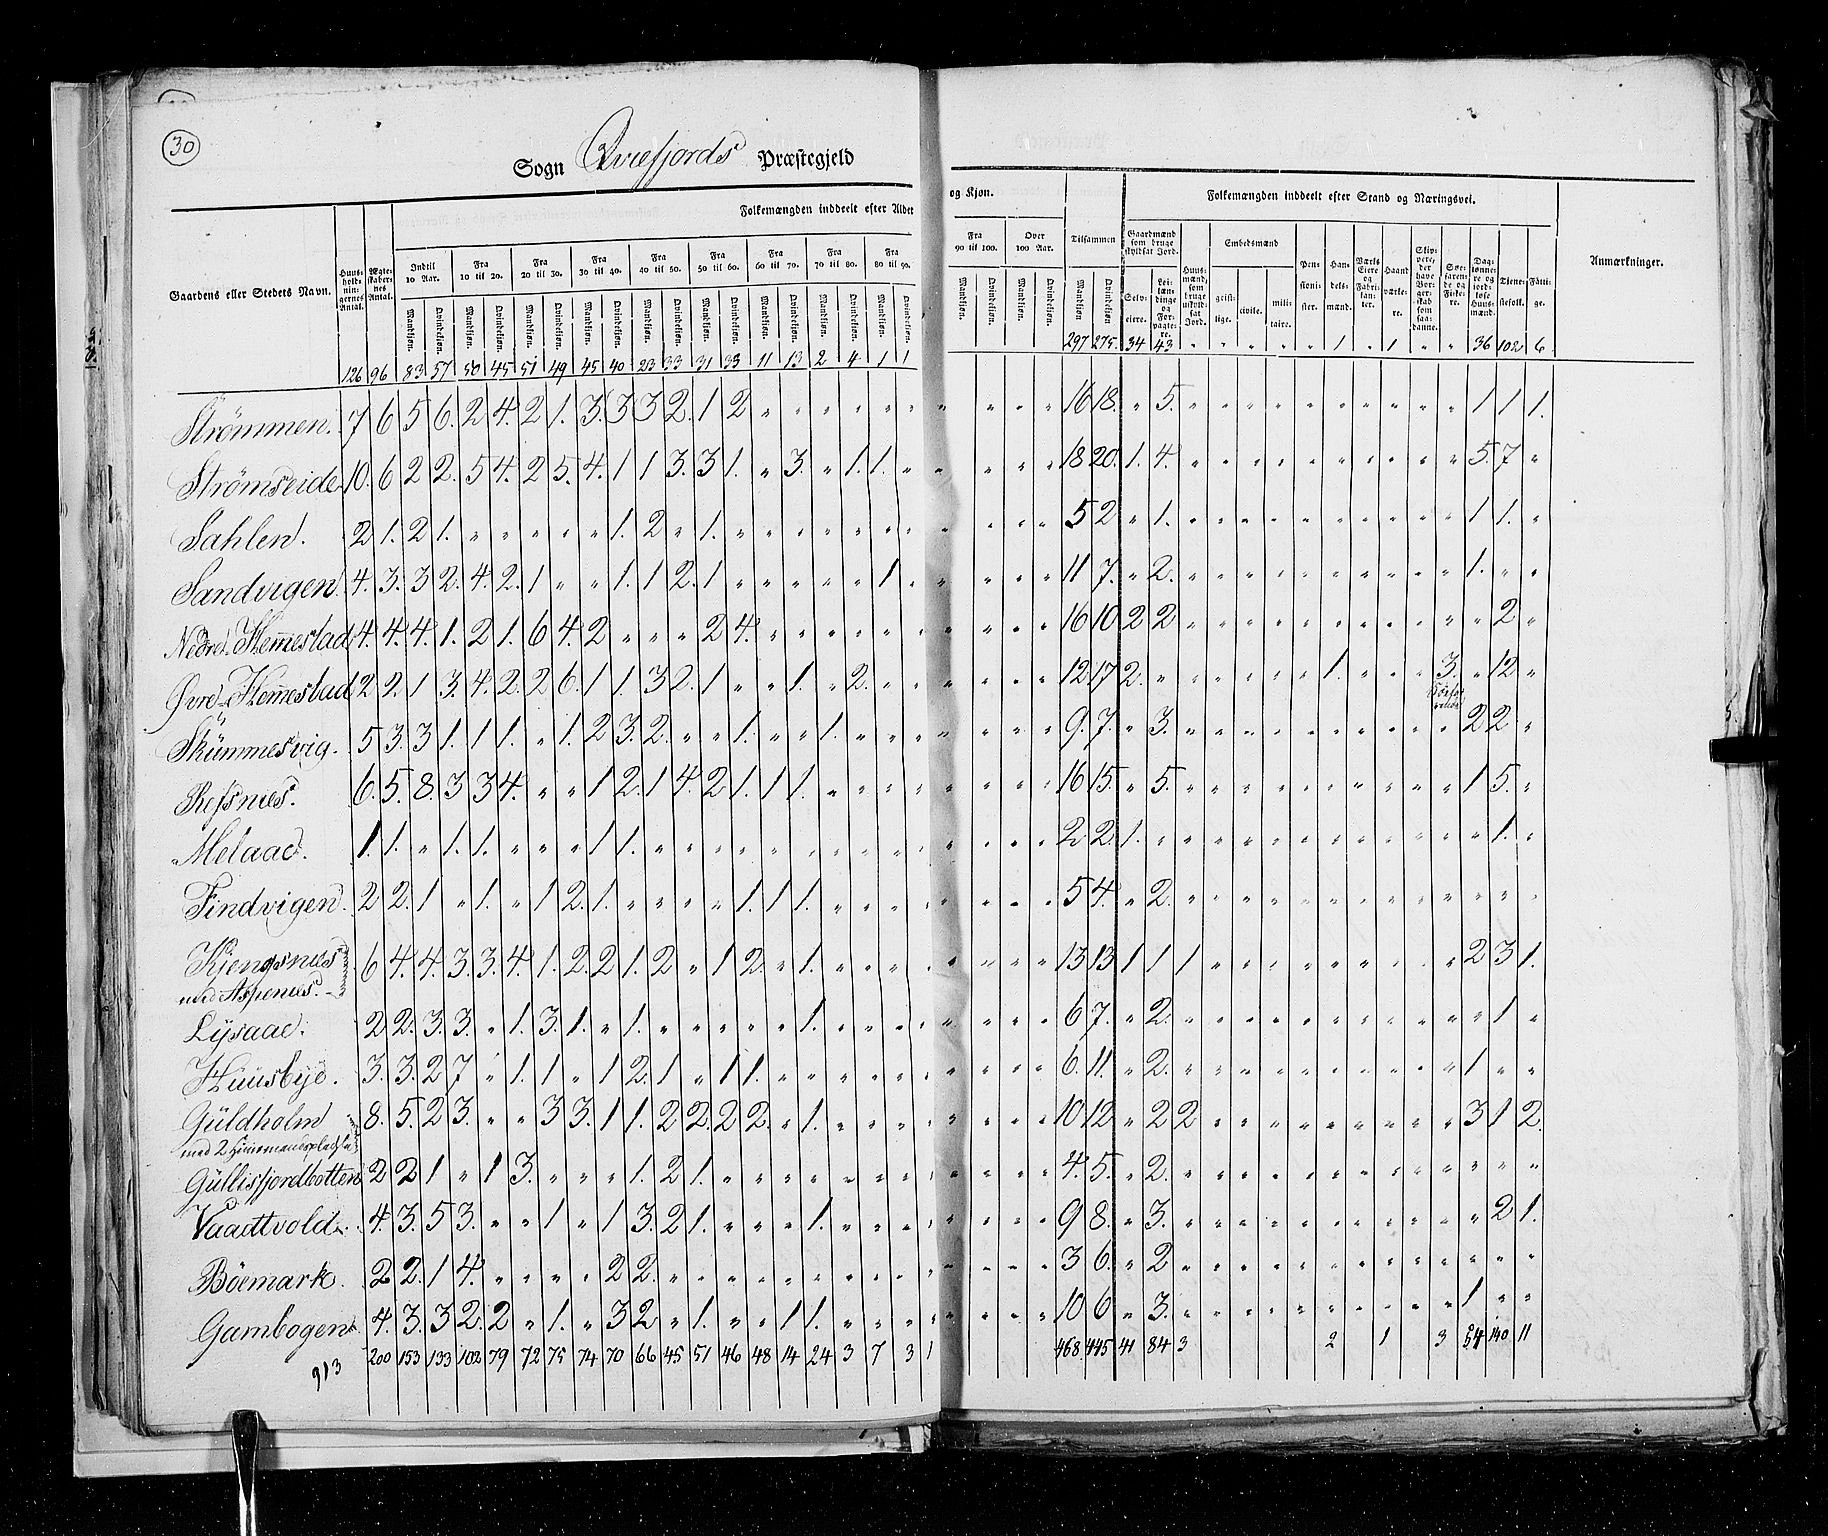 30
Sogn Qviefjords Præstegjeld
Folkemængden inddeelt efter Alder og Kjøn.
Folkemængden inddeelt efter Stand og Næringsvei.
Gaardens eller Stedets Navn.
Huusholdningernes Antal.
Ægteskabernes Antal.
Indtil 10 Aar. Fra 10 til 20. Fra 20 til 30. Fra 30 til 40. Fra 40 til 50. Fra 50 til 60. Fra 60 til 70. Fra 70 til 80. Fra 80 til 90. Fra 90 til 100. Over 100 Aar. Tilsammen
Mandkjøn. Qvindekjøn.
Gaardmænd som bruge skyldsat Jord. Selveiere. Leilændinge og Forpagtere.
Huusmænd, som bruge uskyldsat Jord.
Embedsmænd geistlige. civile. militaire.
Pensionister. Handelsmænd. Værks Eiere og Fabrikanter. Haandværkere. Skippere, der have Borgerskab som saadanne. Søefarende og Fiskere. Daglønnere og jordløse Huusmænd. Tjenestefolk. Fattige.
Anmærkninger.
126 96 83 57 50 45 51 49 45 40 23 33 31 33 11 13 2 4 1 1 297 275 34 43 " " " " " 1 " 1 " " 36 102 6
Strømmen. 7 6 5 6. 2 4. 2 1. 3. 3 3 2. 1 2 " " " " " " " " " " 16 18. " 5. " " " " " " " " " " 1 1 1.
Strømseide 10. 6 2 2. 5 4. 2 5. 4. 1 1 3. 3 1. " 3. " 1. 1. " " " " " 18 20. 1. 4. " " " " " " " " " " 5. 7 "
Sahlen. 2 1. 2 1. " " " " " 1. 2 " 1. " " " " " " " " " " " 5 2 " 1. " " " " " " " " " " 1 1. "
Sandvigen 4. 3. 3 2. 4. 2. 1 " " 1. 1 2. 1 " " " " " 1. " " " " " 11 7. " 2. " " " " " " " " " " 1. " "
Nedre Hemestad 4. 4. 4. 1. 2 1. 6 4. 2 " " " 2 4. " " " " " " " " " " 16 10 2 2 " " " " " " " " " " " 2. "
Øvre Hemestad 2 2. 1 3. 4. 2. 2 6. 1 1. 3 2. 1 " " 1. " 2. " " " " " " 12. 17 2. " " " " " " 1. " " " 3. " 12. "
Skümmesvig. 5 3. 3 1. 1 1. " 1. 2 3. 2. " " 1. " 1. " " " " " " " " 9. 7. " 3. " " " " " " " " " " 2 2. "
Refsnæs. 6. 5. 8. 3 3 4. " " 1 2. 1 4. 2 1. 1 1. " " " " " " " " 16 15. " 5. " " " " " " " " " " 1 5. "
Melaae. 1. 1. " 1. 1. " " " 1 1. " " " " " " " " " " " " " " 2 2. 1. " " " " " " " " " " " " 1. "
Findvigen. 2 2. 1 " 1. " 1 2. 1. " " " " 1. 1 1. " " " " " " " " 5 4. " 2. " " " " " " " " " " " " "
Kjengsnæs 6 4. 4. 3. 3. 4. 1. 2. 2 1. 2 " 1 2. " 1. " " " " " " " " 13 13 1 1 1 " " " " " " " " " 2 3 1.
med Aspenæs.
Lysaae. 2 2. 3. 3. " 1. 3. 1. " 1. " " " " " 1. " " " " " " " " 6 7. " 2. " " " " " " " " " " " 1 "
Huusbye. 3. 3. 2 7 " 1. 1 " 1 2. 1 " 1 1. " " " " " " " " " " 6. 11. " 2. " " " " " " " " " " 1 " "
Güldholm 8. 5. 2 3. " " 3 3. 1 1. 2 2. 2 2. " 1. " " " " " " " " 10 12 " 2 2 " " " " " " " " " 3 1 2.
med 2
Güllisfjordbotten 2 2 1 " 1 3. " " " 1. 2 1. " " " " " " " " " " " " 4. 5. " 2. " " " " " " " " " " " " "
Vaadtvold. 4. 3. 5 3. " " 1 " 1 3. 2 1. " " " 1. " " " " " " " " 9 8. " 3. " " " " " " " " " " " 2 1.
Böemark. 2 2. 1 4. " " " " 2 2. " " " " " " " " " " " " " " 3 6. " 2 " " " " " " " " " " " " "
Gambogen. 4. 3. 3 2. 2 " 1. " 3 2. " 1. " " 1 1. " " " " " " " " 10 6. " 3. " " " " " " " " " " 1 " "
200 153 133 102 79 72 75 74 70 66 45 51 46 48 14 24 3 7 3 1 468 445 41 84 3 2 1 3 54 140 11
913